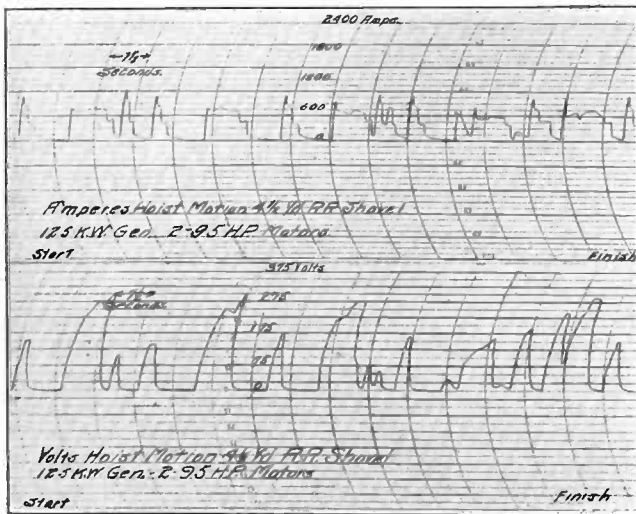 2400 Amps.
1800
←7½→
Seconds.
1200
600
0
Amperes Hoist Motion 4½ Yd RR Shovel
125 KW Gen. 2-95 H.P. Motors
Start Finish
375 Volts
275
←7½→
Seconds
175
75
0
Volts Hoist Motion 4½ Yd R.R. Shovel
125 KW Gen.-2-95 H.P. Motors
Start Finish